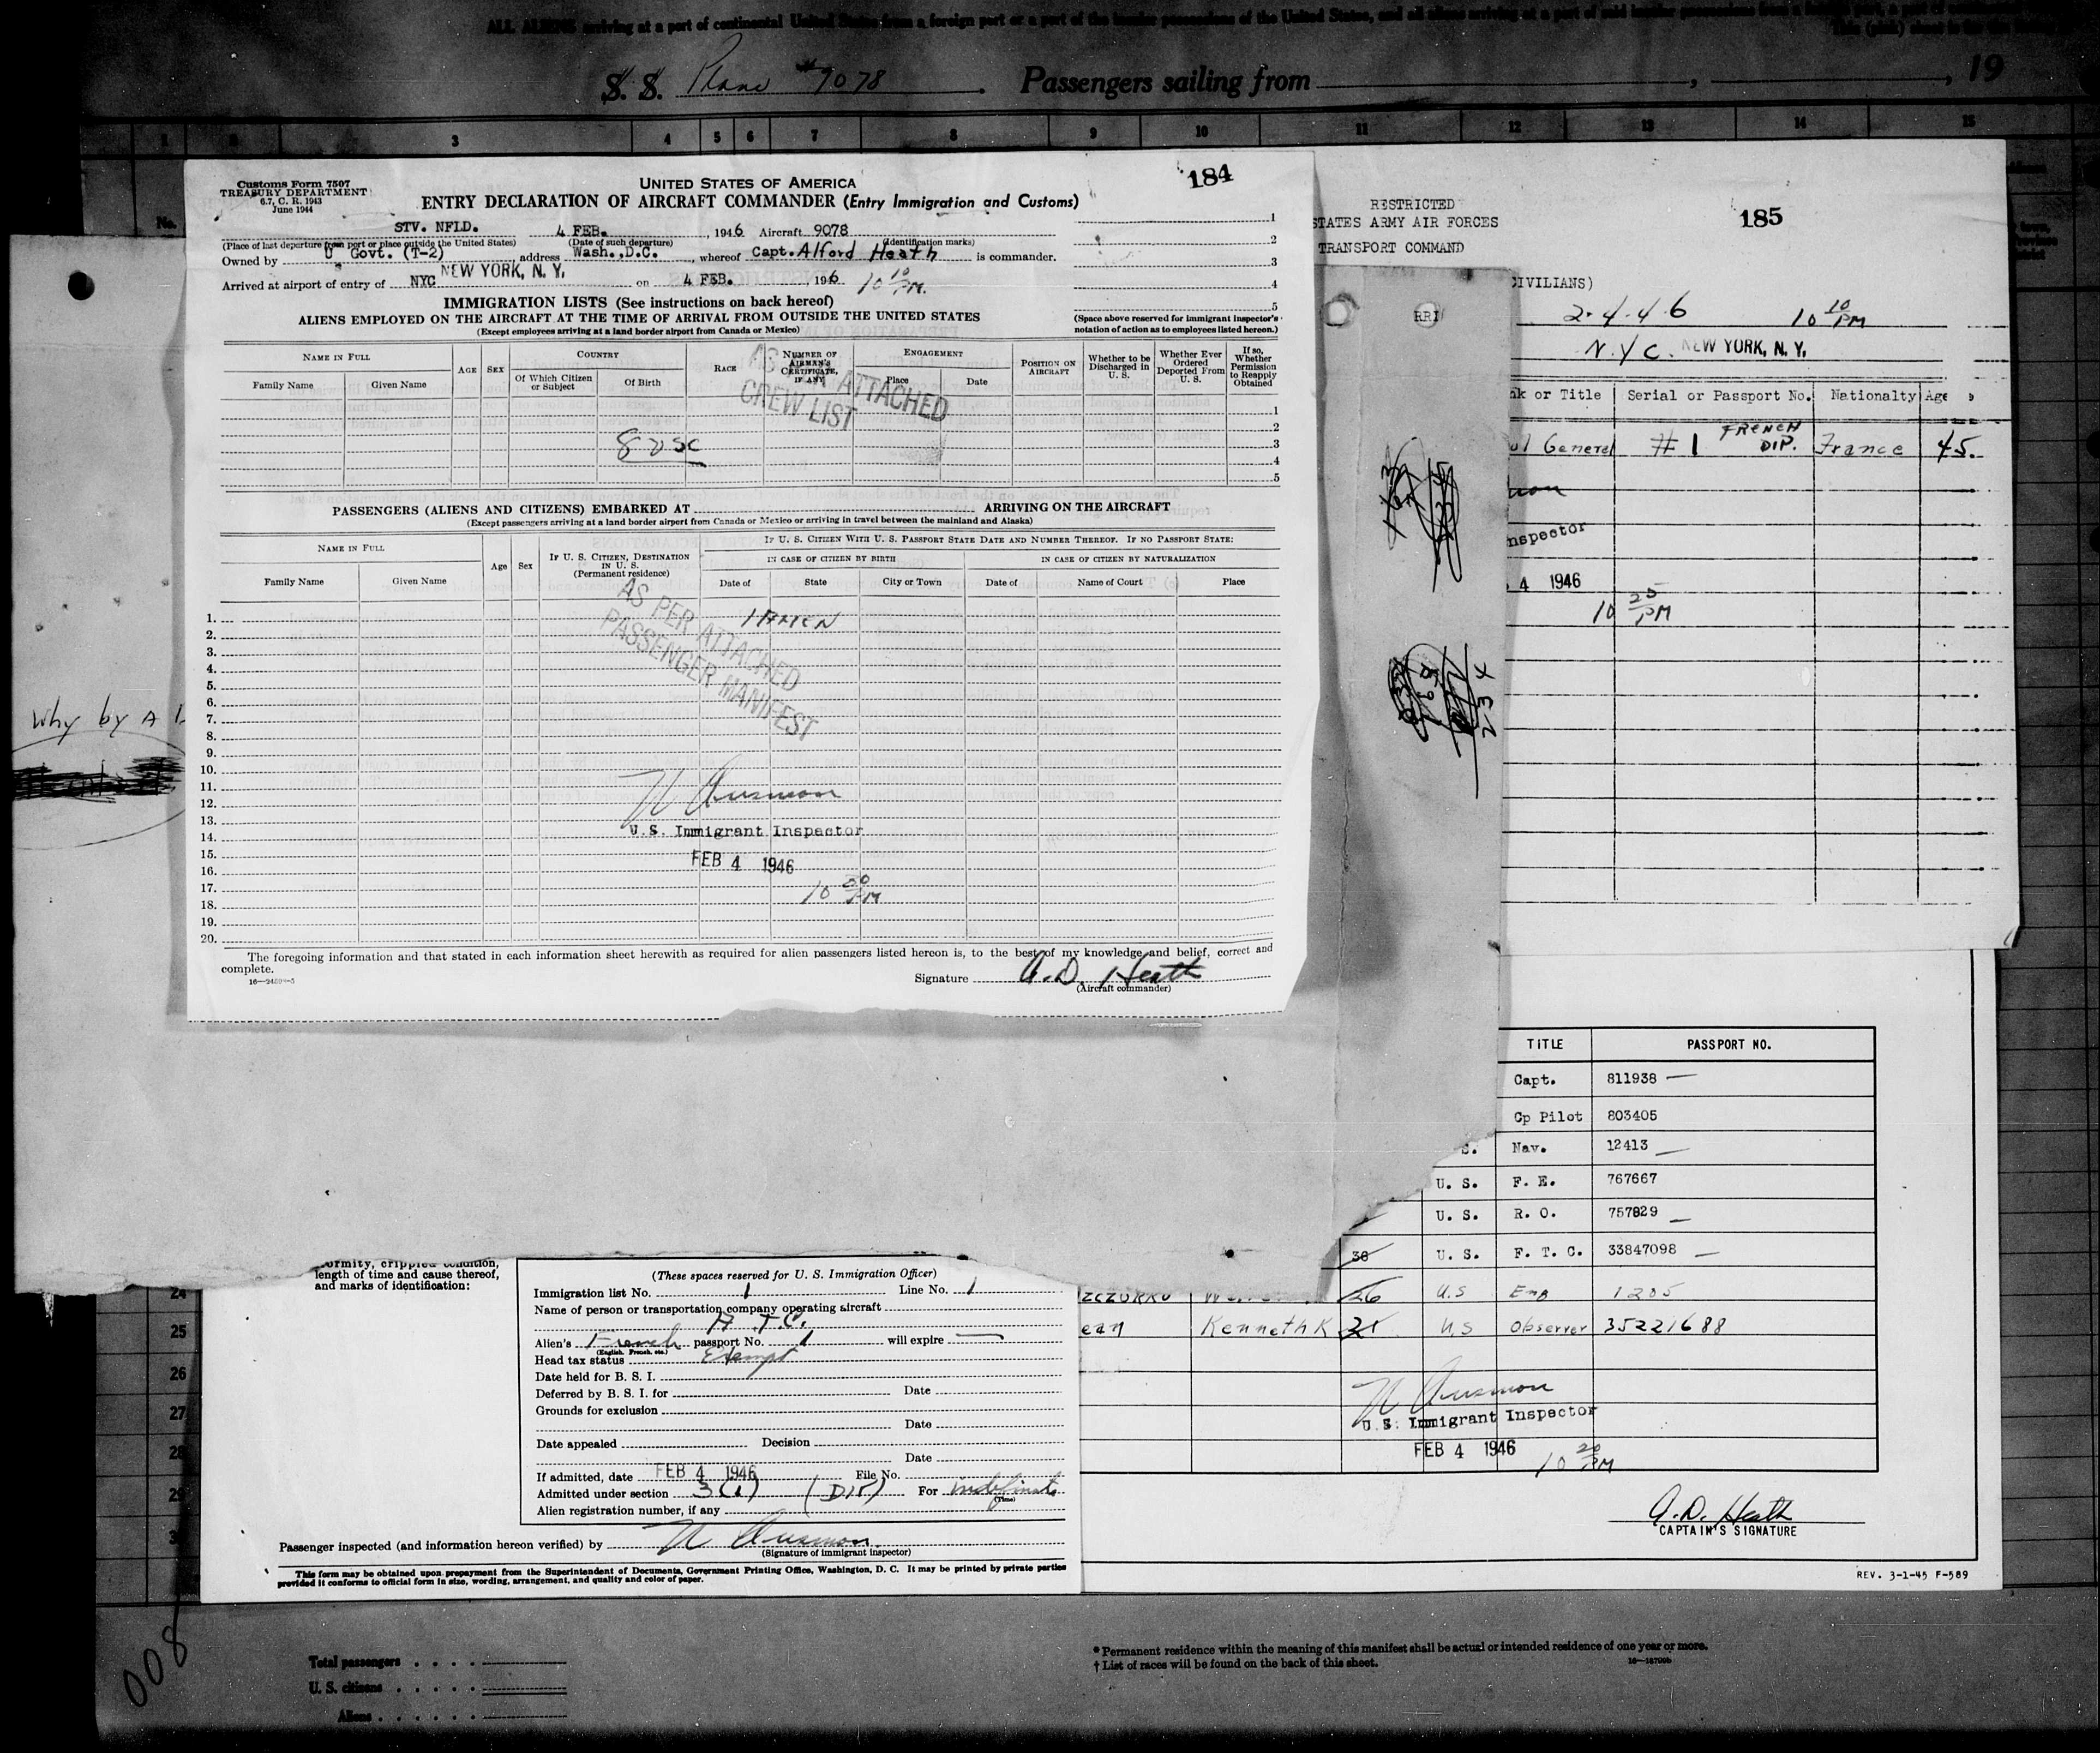 ALL ALIENS arriving at a port of continental United States from a foreign port or a port of the insular possessions of the United States, and all aliens arriving at a port of said insular possessions from a foreign port, a port of continental
This (pink) sheet is for the
S. S. Plane #9078 . Passengers sailing from , , 19
1 2 3 4 5 6 7 8 9 10 11 12 13 14 15
No.
Customs Form 7507
TREASURY DEPARTMENT
6.7, C. R. 1943
June 1944
184
UNITED STATES OF AMERICA
ENTRY DECLARATION OF AIRCRAFT COMMANDER (Entry Immigration and Customs)
STV. NFLD. 4 FEB. , 1946 Aircraft 9078
(Place of last departure from port or place outside the United States) (Date of such departure) (Identification marks)
Owned by U. Govt. (T-2) , address Wash.,D.C. , whereof Capt. Alford Heath is commander.
Arrived at airport of entry of NYC NEW YORK, N. Y. on 4 FEB. , 1946 10 10 PM.
1
2
3
4
5
IMMIGRATION LISTS (See instructions on back hereof)
ALIENS EMPLOYED ON THE AIRCRAFT AT THE TIME OF ARRIVAL FROM OUTSIDE THE UNITED STATES
(Except employees arriving at a land border airport from Canada or Mexico)
(Space above reserved for Immigrant Inspector's notation of action as to employees listed hereon.)
NAME IN FULL
Family Name Given Name
AGE SEX
COUNTRY
Of Which Citizen or Subject Of Birth
RACE
NUMBER OF AIRMAN'S CERTIFICATE, IF ANY
ENGAGEMENT
Place Date
POSITION ON AIRCRAFT
Whether to be Discharged in U. S.
Whether Ever Ordered Deported From U. S.
If so, Whether Permission to Reapply Obtained
AS ATTACHED
CREW LIST
8 USC
1
2
3
4
5
PASSENGERS (ALIENS AND CITIZENS) EMBARKED AT ARRIVING ON THE AIRCRAFT
(Except passengers arriving at a land border airport from Canada or Mexico or arriving in travel between the mainland and Alaska)
NAME IN FULL
Family Name Given Name
Age Sex
IF U. S. CITIZEN, DESTINATION IN U. S.
(Permanent residence)
IF U. S. CITIZEN WITH U. S. PASSPORT STATE DATE AND NUMBER THEREOF. IF NO PASSPORT STATE:
IN CASE OF CITIZEN BY BIRTH IN CASE OF CITIZEN BY NATURALIZATION
Date of State City or Town Date of Name of Court Place
AS PER ATTACHED
PASSENGER MANIFEST
1.
2.
3.
4.
5.
6.
7.
8.
9.
10.
11.
12.
13.
14.
15.
16.
17.
18.
19.
20.
U.S. Immigrant Inspector
FEB 4 1946
10 20 PM
The foregoing information and that stated in each information sheet herewith as required for alien passengers listed hereon is, to the best of my knowledge and belief, correct and
complete.
Signature A. D. Heath
(Aircraft commander)
why by A
RESTRICTED
STATES ARMY AIR FORCES
TRANSPORT COMMAND
185
CIVILIANS)
2-4-46 10 10 PM
N.Y.C. NEW YORK, N. Y.
nk or Title Serial or Passport No. Nationalty Age
ul General #1 FRENCH DIP. France 45.
nspector
4 1946
10 25 PM
163
234
TITLE PASSPORT NO.
Capt. 811938
Cp Pilot 803405
S. Nav. 12413
U. S. F. E. 767667
U. S. R. O. 757829
36 U. S. F. T. C. 33847098
26 U.S Eng 1205
ean Kenneth K 31 U.S Observer 35221688
U.S. Immigrant Inspector
FEB 4 1946
10 20 PM
A. D. Heath
CAPTAIN'S SIGNATURE
REV. 3-1-45 F-589
ormity, crippled condition,
length of time and cause thereof,
and marks of identification:
(These spaces reserved for U. S. Immigration Officer)
Immigration list No. 1 Line No. 1
Name of person or transportation company operating aircraft
A.T.C.
Alien's French passport No. 1 will expire
(English, French, etc.)
Head tax status Exempt
Date held for B. S. I.
Deferred by B. S. I. for Date
Grounds for exclusion
Date
Date appealed Decision
Date
If admitted, date FEB 4 1946 File No.
Admitted under section 3(1) (DIP) For indefinite
(Time)
Alien registration number, if any
Passenger inspected (and information hereon verified) by
(Signature of immigrant inspector)
This form may be obtained upon prepayment from the Superintendent of Documents, Government Printing Office, Washington, D. C. It may be printed by private parties
provided it conforms to official form in size, wording, arrangement, and quality and color of paper.
24
25
26
27
28
29
3
008
Total passengers
U. S. citizens
Aliens
* Permanent residence within the meaning of this manifest shall be actual or intended residence of one year or more.
† List of races will be found on the back of this sheet.